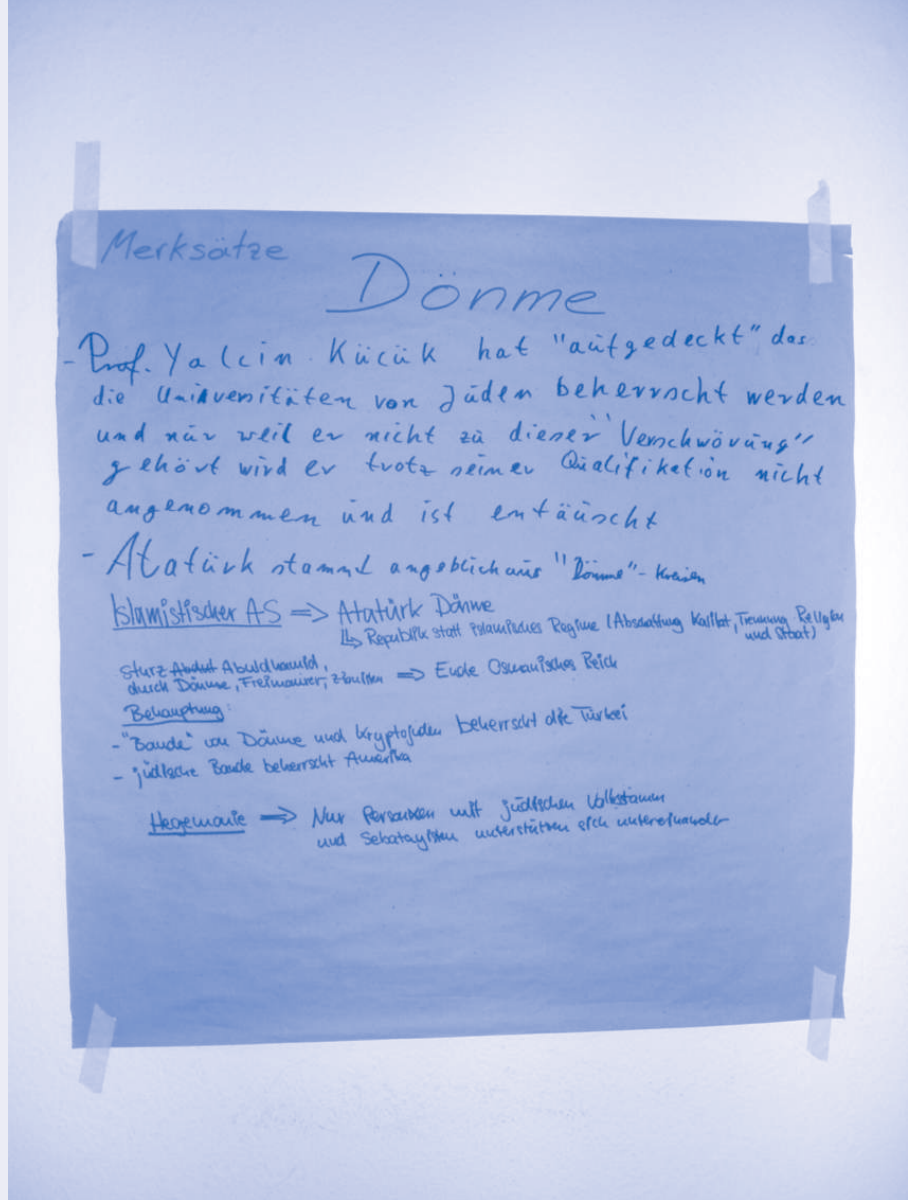 Merksätze
Dönme
- Prof. Yalcin Kücük hat "aufgedeckt" das
die Uniaversitäten von Juden beherrscht werden
und nur weil er nicht zu dieser "Verschwörung"
gehört wird er trotz seiner Qualifikation nicht
angenommen und ist entäuscht
- Atatürk stammt angeblich aus "Dönme"-Kreisen
Islamistischer AS => Atatürk Dönme
Republik statt islamisches Regime (Abschaffung Kalifat, Trennung Religion
und Staat)
Sturz Abduldhamid,
durch Dönme, Freimaurer, Zionisten => Ende Osmanisches Reich
Behauptung:
- "Bande" von Dönme und Kryptojuden beherrscht die Türkei
- jüdische Bande beherrscht Amerika
Hegemonie => Nur Personen mit jüdischen Volksstamm
und Sebatayisten unterstützen sich untereinander